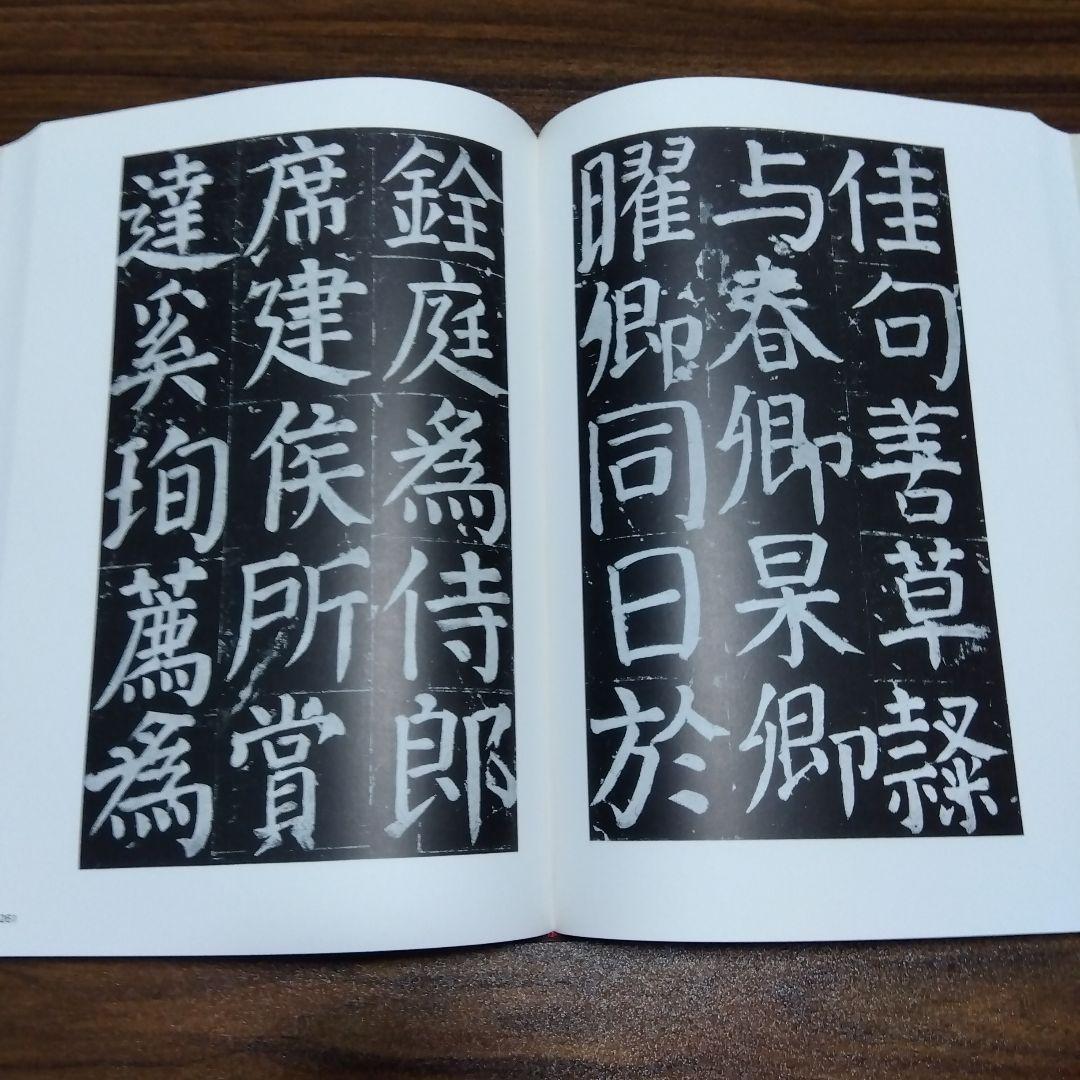 佳句善草隸
与春卿杲卿
曜卿同日於
銓庭為侍郎
席建侯所賞
達奚珣薦為
261